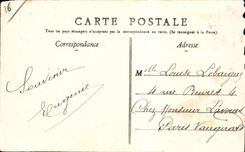 16
CARTE POSTALE
Tous les pays étrangers n'acceptent pas la correspondance au recto. (Se renseigner à la Poste).
Correspondance
Adresse
Souvenir
Eugénie
Mlle
4 rue
Chez Monsieur
Paris Vaugirard